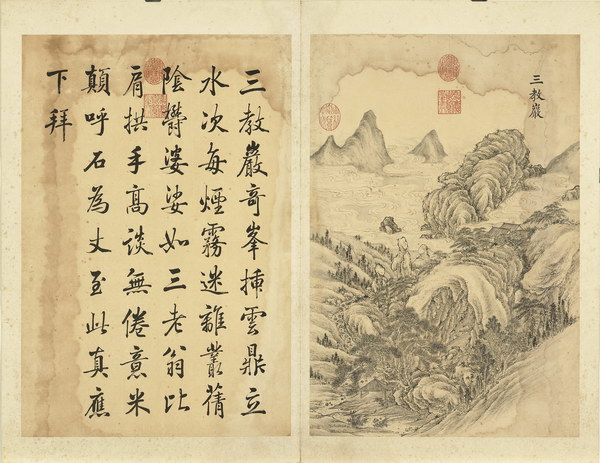 三教巖
三教巖奇峯揷雲鼎立
水次每煙霧迷離叢蒨
陰欝婆娑如三老翁比
肩拱手高談無倦意米
顛呼石為丈至此真應
下拜